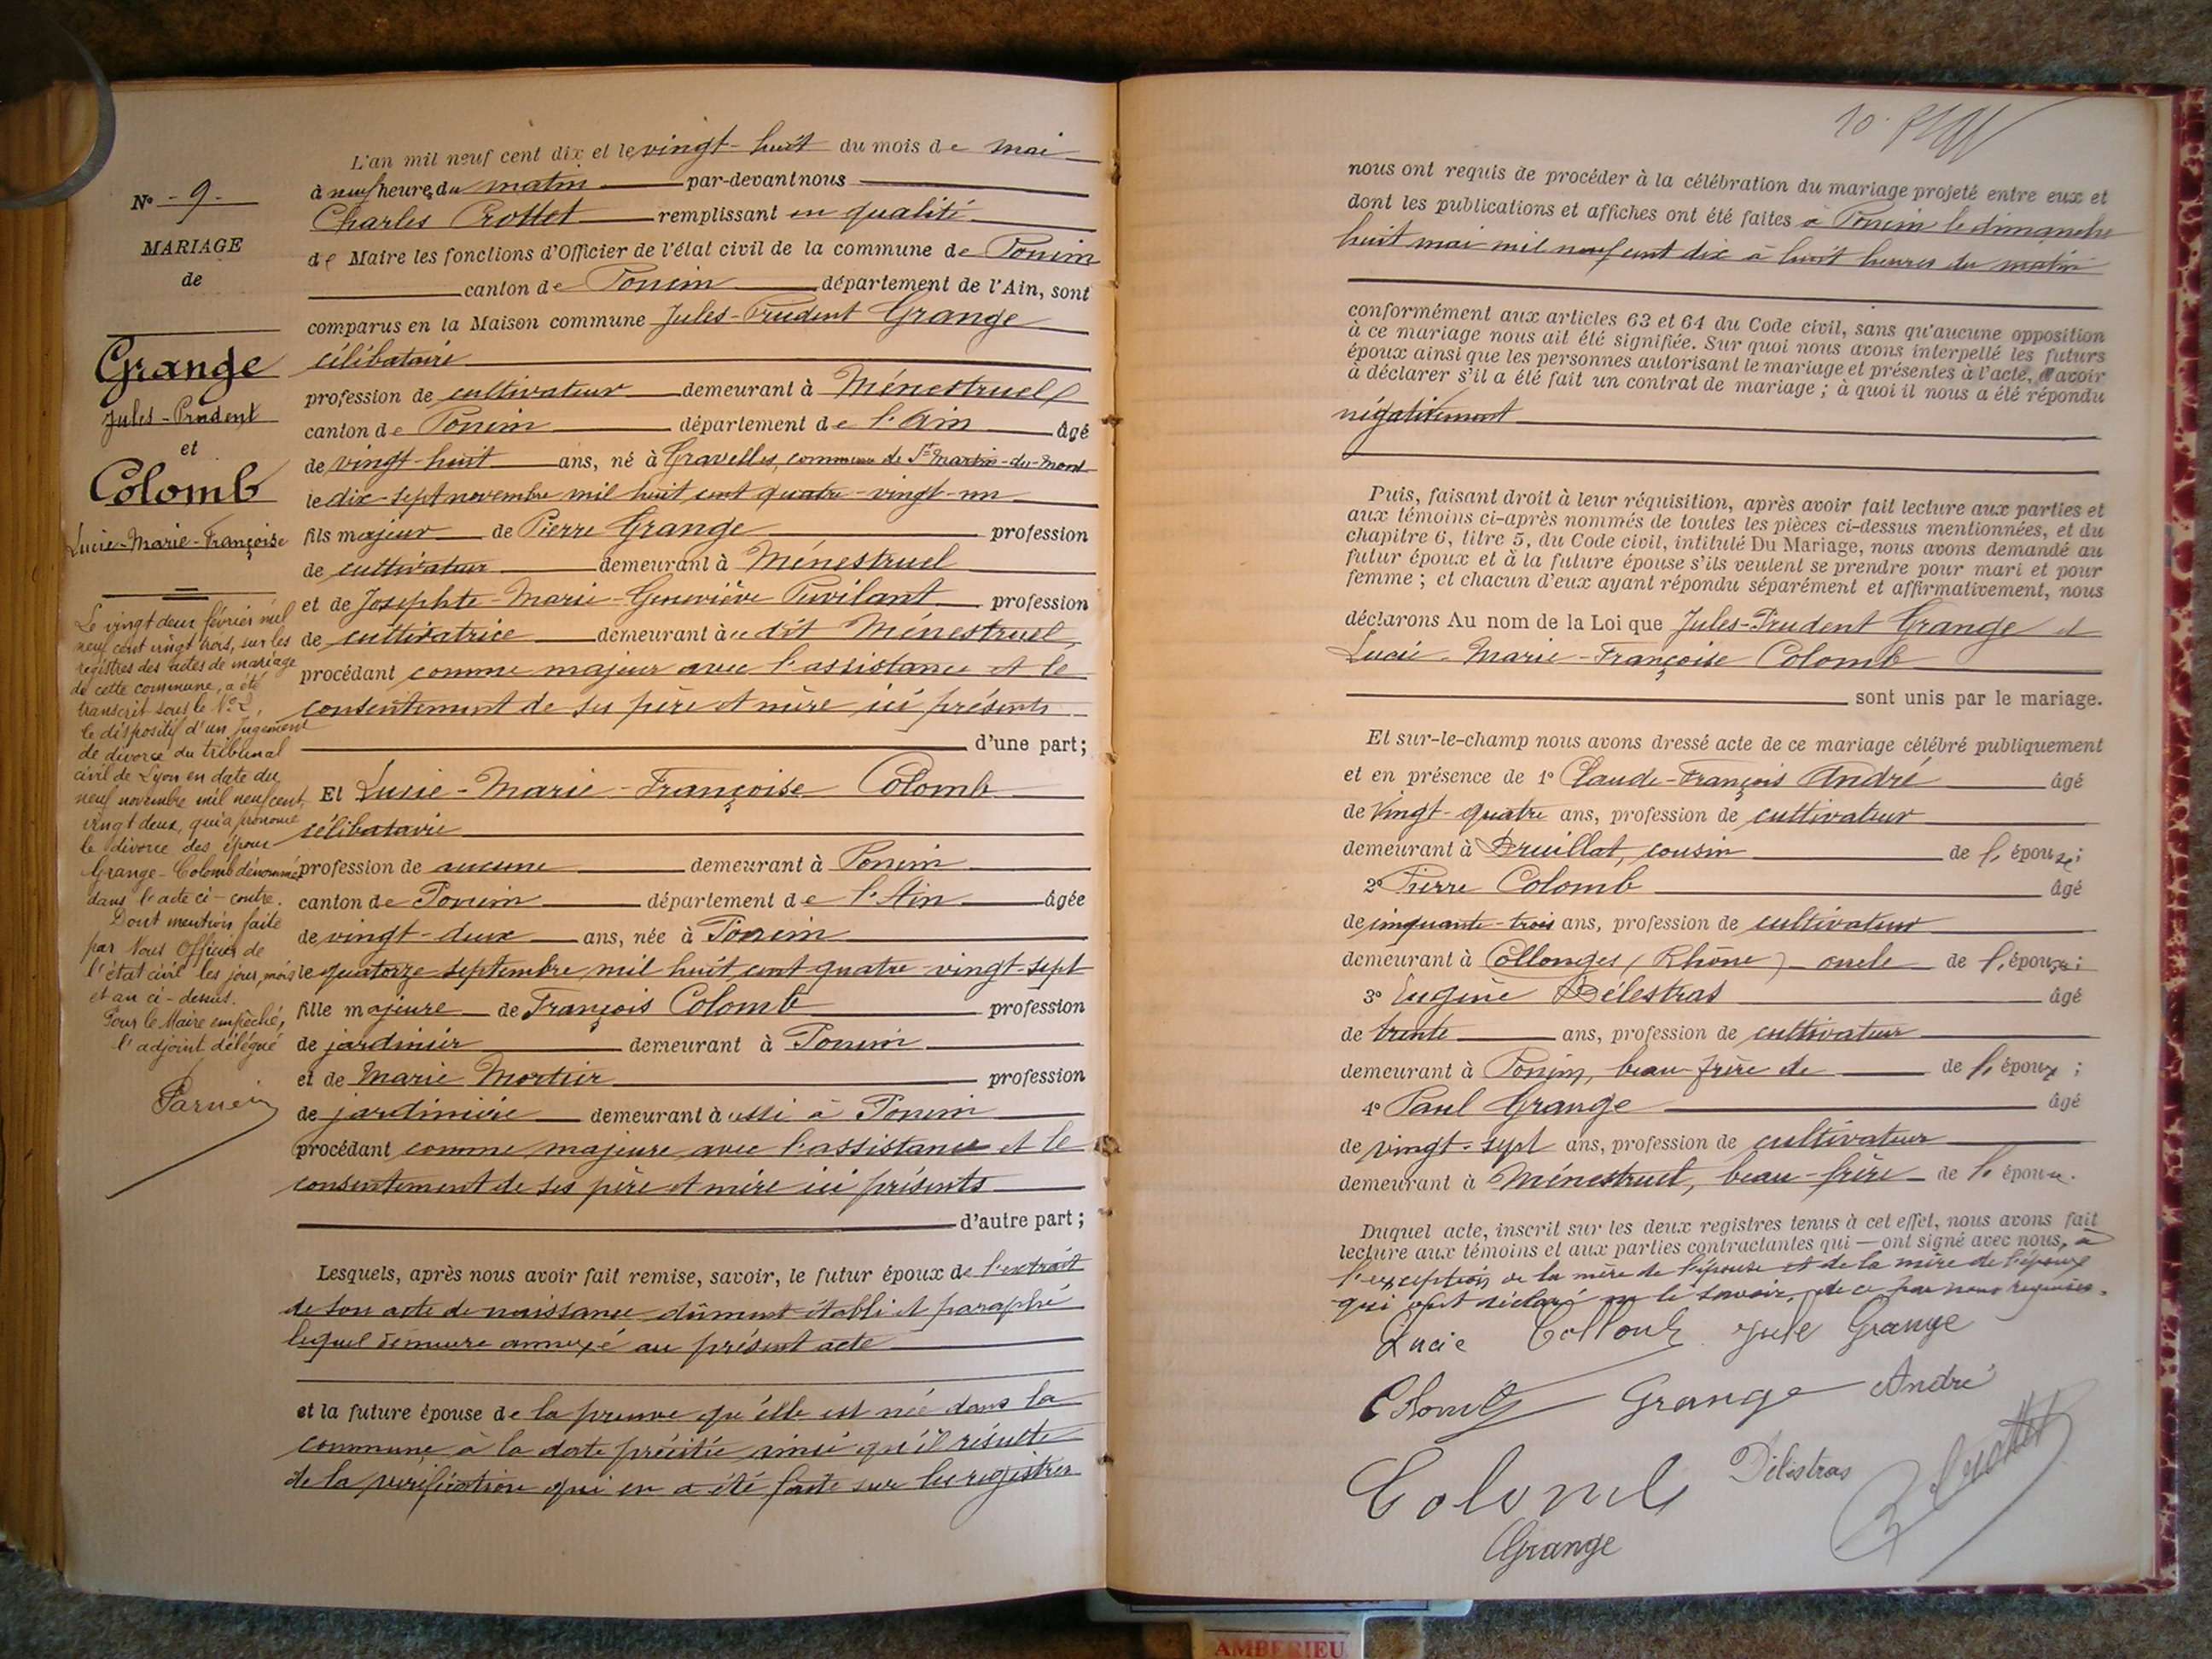 N° - 9 -
MARIAGE
de
Grange
Jules-Prudent
et
Colomb
Lucie-Marie-Françoise
Le vingt deux février mil
neuf cent vingt trois, sur les
registres des actes de mariage
de cette commune, a été
transcrit sous le N° 2,
le dispositif d'un Jugement
de divorce du tribunal
civil de Lyon en date du
neuf novembre mil neuf cent
vingt deux, qui a prononcé
le divorce des époux
Grange-Colomb dénommés
dans l'acte ci-contre.
Dont mention faite
par Nous Officier de
l'état civil les jour, mois
et an ci-dessus.
Pour le Maire empêché,
l'adjoint délégué
L'an mil neuf cent dix et le vingt-huit du mois de mai
à neuf heures du matin par-devant nous
Charles Crottet remplissant en qualité
de Maire les fonctions d'Officier de l'état civil de la commune de Poncin
canton de Poncin département de l'Ain, sont
comparus en la Maison commune Jules-Prudent Grange
célibataire
profession de cultivateur demeurant à Ménestruel
canton de Poncin département de l'Ain âgé
de vingt-huit ans, né à Gravelles, commune de St Martin-du-Mont
le dix-sept novembre mil huit cent quatre-vingt-un
fils majeur de Pierre Grange profession
de cultivateur demeurant à Ménestruel
et de Josephte-Marie-Geneviève Puvilant profession
de cultivatrice demeurant à u dit Ménestruel,
procédant comme majeur avec l'assistance et le
consentement de ses père et mère ici présents
d'une part;
Et Lucie-Marie-Françoise Colomb
célibataire
profession de aucune demeurant à Poncin
canton de Poncin département de l'Ain âgée
de vingt-deux ans, née à Poncin
le quatorze septembre mil huit cent quatre-vingt-sept
fille majeure de François Colomb profession
de jardinier demeurant à Poncin
et de Marie Mortier profession
de jardinière demeurant à ussi à Poncin
procédant comme majeure avec l'assistance et le
consentement de ses père et mère ici présents
d'autre part;
Lesquels, après nous avoir fait remise, savoir, le futur époux de l'extrait
de son acte de naissance dûment établi et paraphé
lequel demeure annexé au présent acte
et la future épouse de la preuve qu'elle est née dans la
commune, à la date précitée ainsi qu'il résulte
de la vérification qui en a été faite sur les registres
10
nous ont requis de procéder à la célébration du mariage projeté entre eux et
dont les publications et affiches ont été faites à Poncin le dimanche
huit mai mil neuf cent dix à huit heures du matin
conformément aux articles 63 et 64 du Code civil, sans qu'aucune opposition
à ce mariage nous ait été signifiée. Sur quoi nous avons interpellé les futurs
époux ainsi que les personnes autorisant le mariage et présentes à l'acte, d'avoir
à déclarer s'il a été fait un contrat de mariage; à quoi il nous a été répondu
négativement
Puis, faisant droit à leur réquisition, après avoir fait lecture aux parties et
aux témoins ci-après nommés de toutes les pièces ci-dessus mentionnées, et du
chapitre 6, titre 5, du Code civil, intitulé Du Mariage, nous avons demandé au
futur époux et à la future épouse s'ils veulent se prendre pour mari et pour
femme; et chacun d'eux ayant répondu séparément et affirmativement, nous
déclarons Au nom de la Loi que Jules-Prudent Grange et
Lucie-Marie-Françoise Colomb
sont unis par le mariage.
Et sur-le-champ nous avons dressé acte de ce mariage célébré publiquement
et en présence de 1° Claude-François André âgé
de vingt-quatre ans, profession de cultivateur
demeurant à Druillat, cousin de l'épouse;
2° Pierre Colomb âgé
de cinquante-trois ans, profession de cultivateur
demeurant à Collonges (Rhône) oncle de l'épouse;
3° Eugène Délestras âgé
de trente ans, profession de cultivateur
demeurant à Poncin, beau-frère de de l'époux;
4° Paul Grange âgé
de vingt-sept ans, profession de cultivateur
demeurant à Ménestruel, beau-frère de l'épouse.
Duquel acte, inscrit sur les deux registres tenus à cet effet, nous avons fait
lecture aux témoins et aux parties contractantes qui — ont signé avec nous, à
l'exception de la mère de l'épouse et de la mère de l'époux
qui ont déclaré ne le savoir, de ce par nous requises.
Lucie Collomb Jule Grange
Grange André
Colomb Délestras
Grange
AMBERIEU